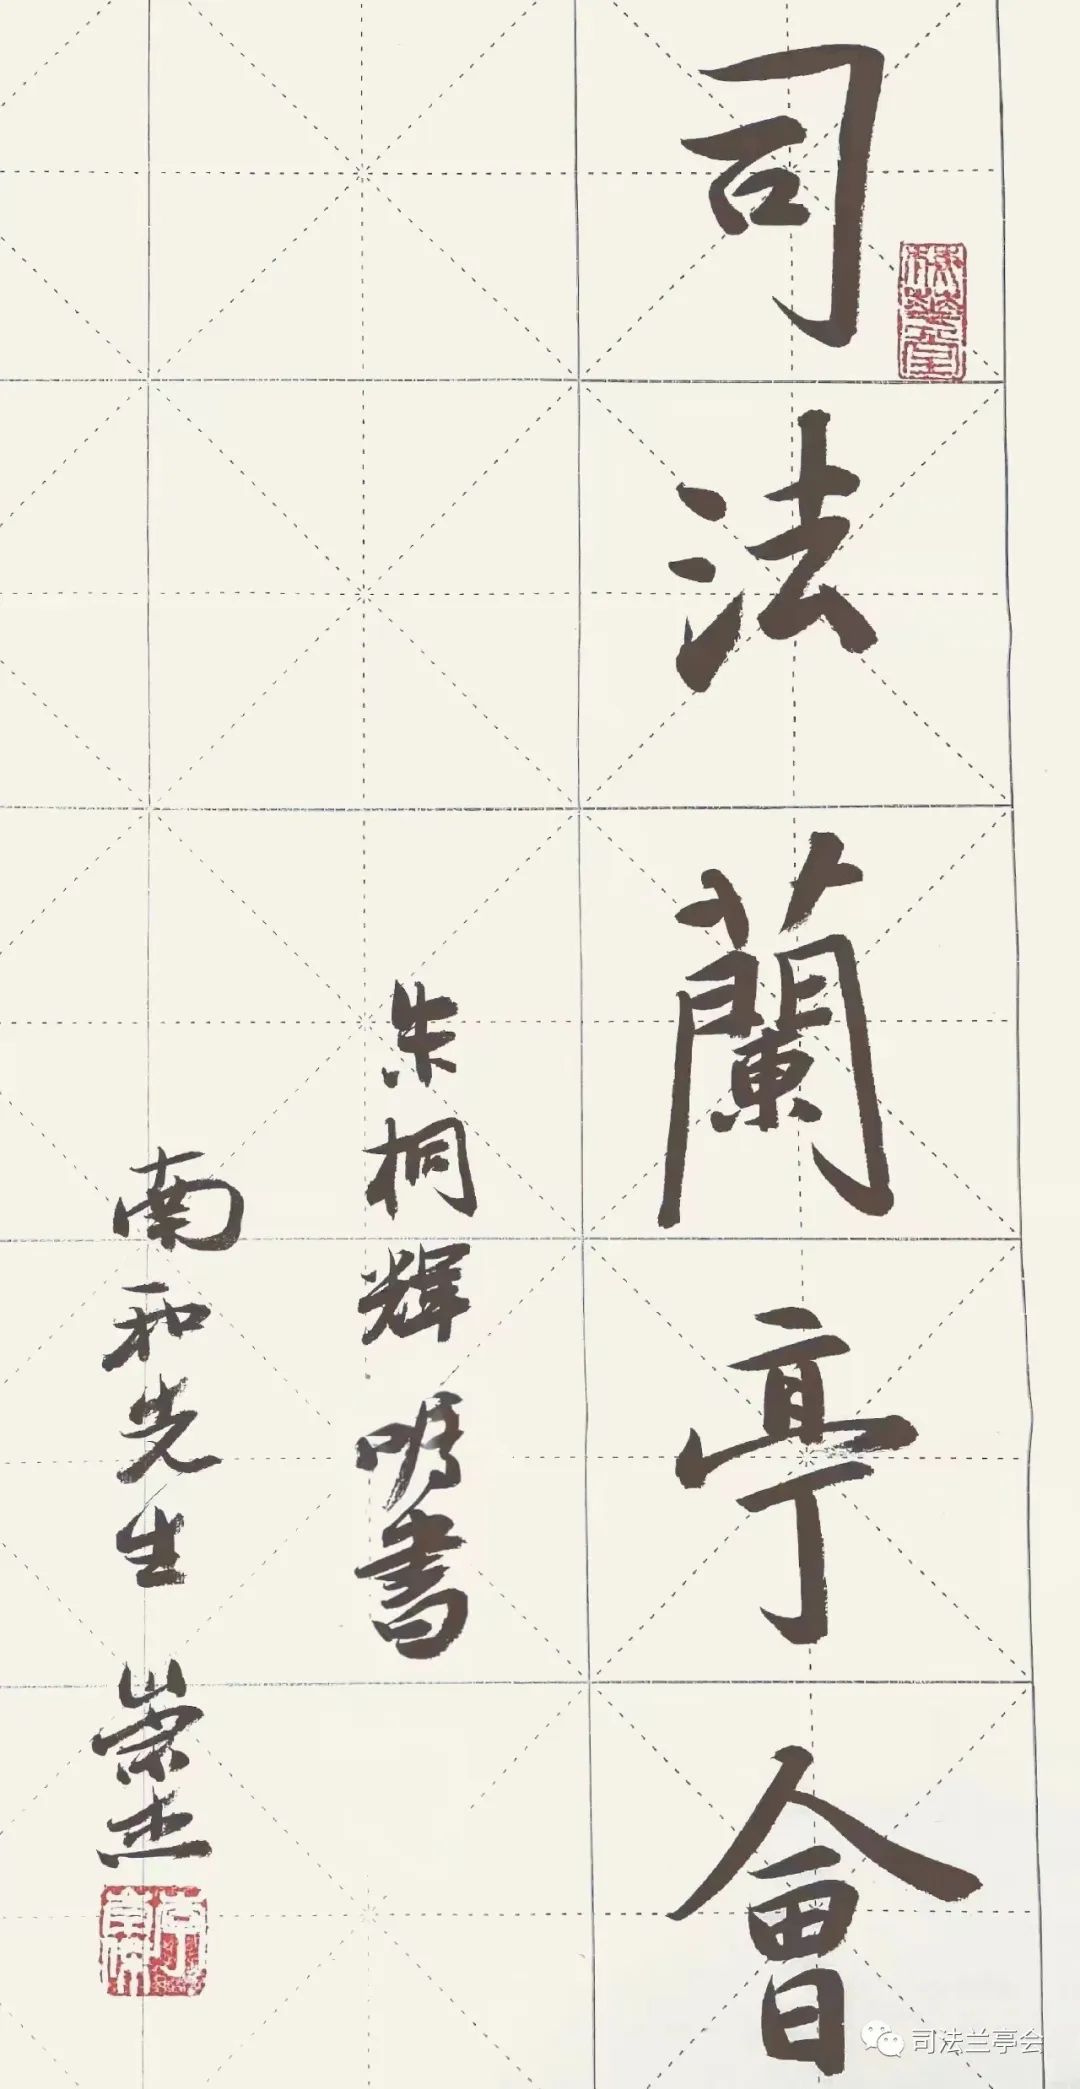 司法蘭亭會
朱桐輝嘱書
南和先生 崇杰
司法兰亭会